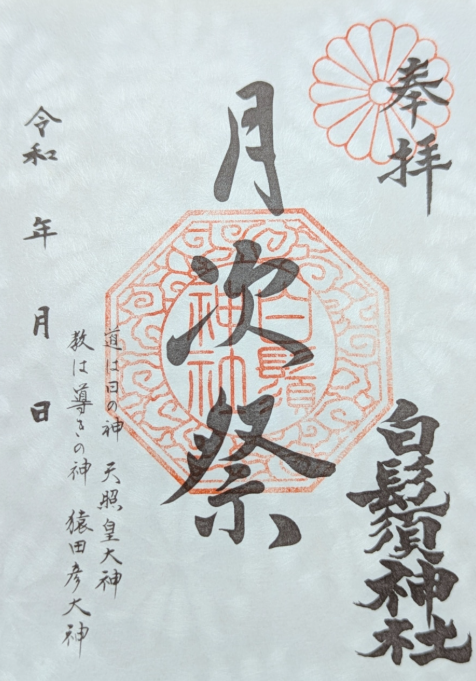 奉拝
白鬚神社
月次祭
白鬚
神社
道は日の神 天照皇大神
教は導きの神 猿田彦大神
令和 年 月 日